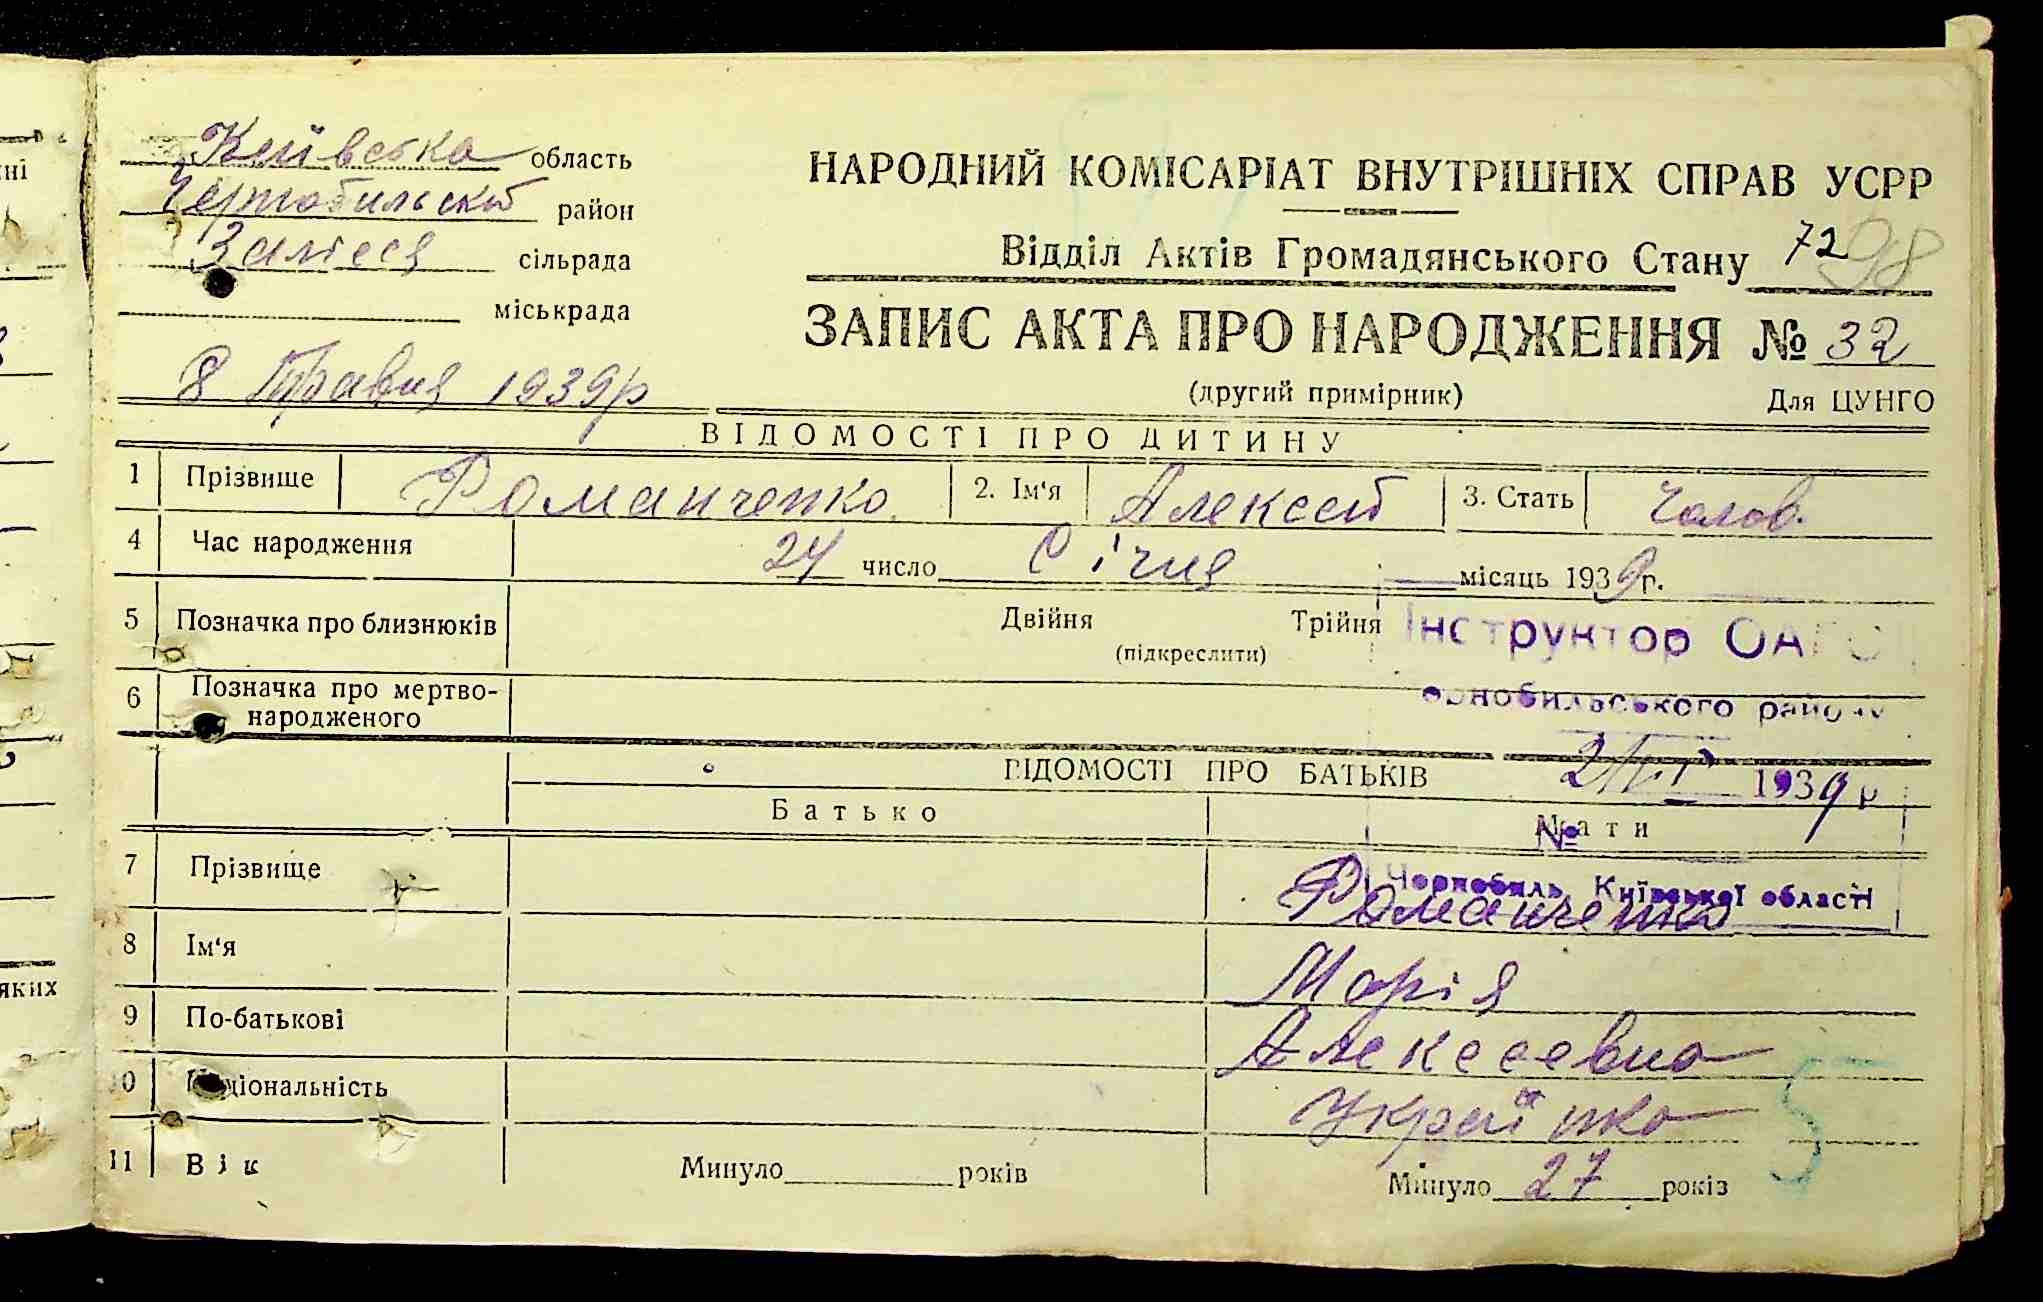 Київська область
Чернобильский район
Залісся сільрада
міськрада
8 Травня 1939 р
НАРОДНИЙ КОМІСАРІАТ ВНУТРІШНІХ СПРАВ УСРР
Відділ Актів Громадянського Стану 72 98
ЗАПИС АКТА ПРО НАРОДЖЕННЯ № 32
(другий примірник) Для ЦУНГО
ВІДОМОСТІ ПРО ДИТИНУ
1 Прізвище Романченко 2. Ім'я Алексей 3. Стать Чолов.
4 Час народження 24 число Січня місяць 1939 р.
5 Позначка про близнюків Двійня Трійня
(підкреслити)
Інструктор ОАГС
орнобильського району
6 Позначка про мертво-
народженого
ВІДОМОСТІ ПРО БАТЬКІВ
1939 р
Батько Мати
№
Чорнобиль, Київської області
7 Прізвище Романченко
8 Ім'я Марія
9 По-батькові Алексеевна
10 Національність Українка
11 Вік Минуло років Минуло 27 років
ні
яких